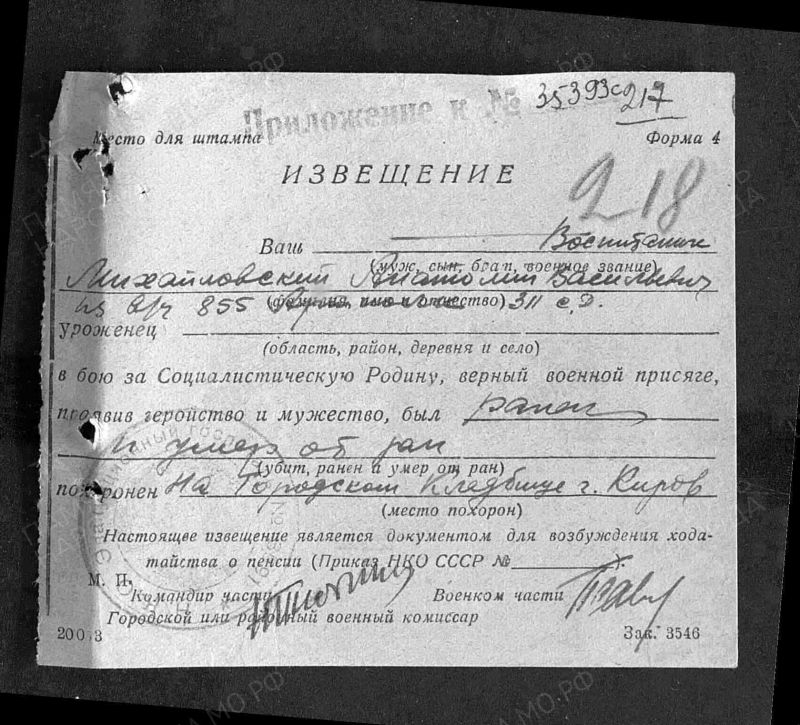 Приложение к № 35393с 217
Место для штампа
Форма 4
ИЗВЕЩЕНИЕ
218
Ваш Воспитанник
(муж, сын, брат, военное звание)
Михайловский Анатолий Васильевич
из в/ч 855 311 с.д.
(фамилия, имя и отчество)
уроженец
(область, район, деревня и село)
в бою за Социалистическую Родину, верный военной присяге,
проявив геройство и мужество, был ранен
и умер от ран
(убит, ранен и умер от ран)
похоронен На Городском Кладбище г. Киров
(место похорон)
Настоящее извещение является документом для возбуждения хода-
тайства о пенсии (Приказ НКО СССР № ).
М. П.
Командир части
Военком части
Городской или районный военный комиссар
200 3
Зак. 3546